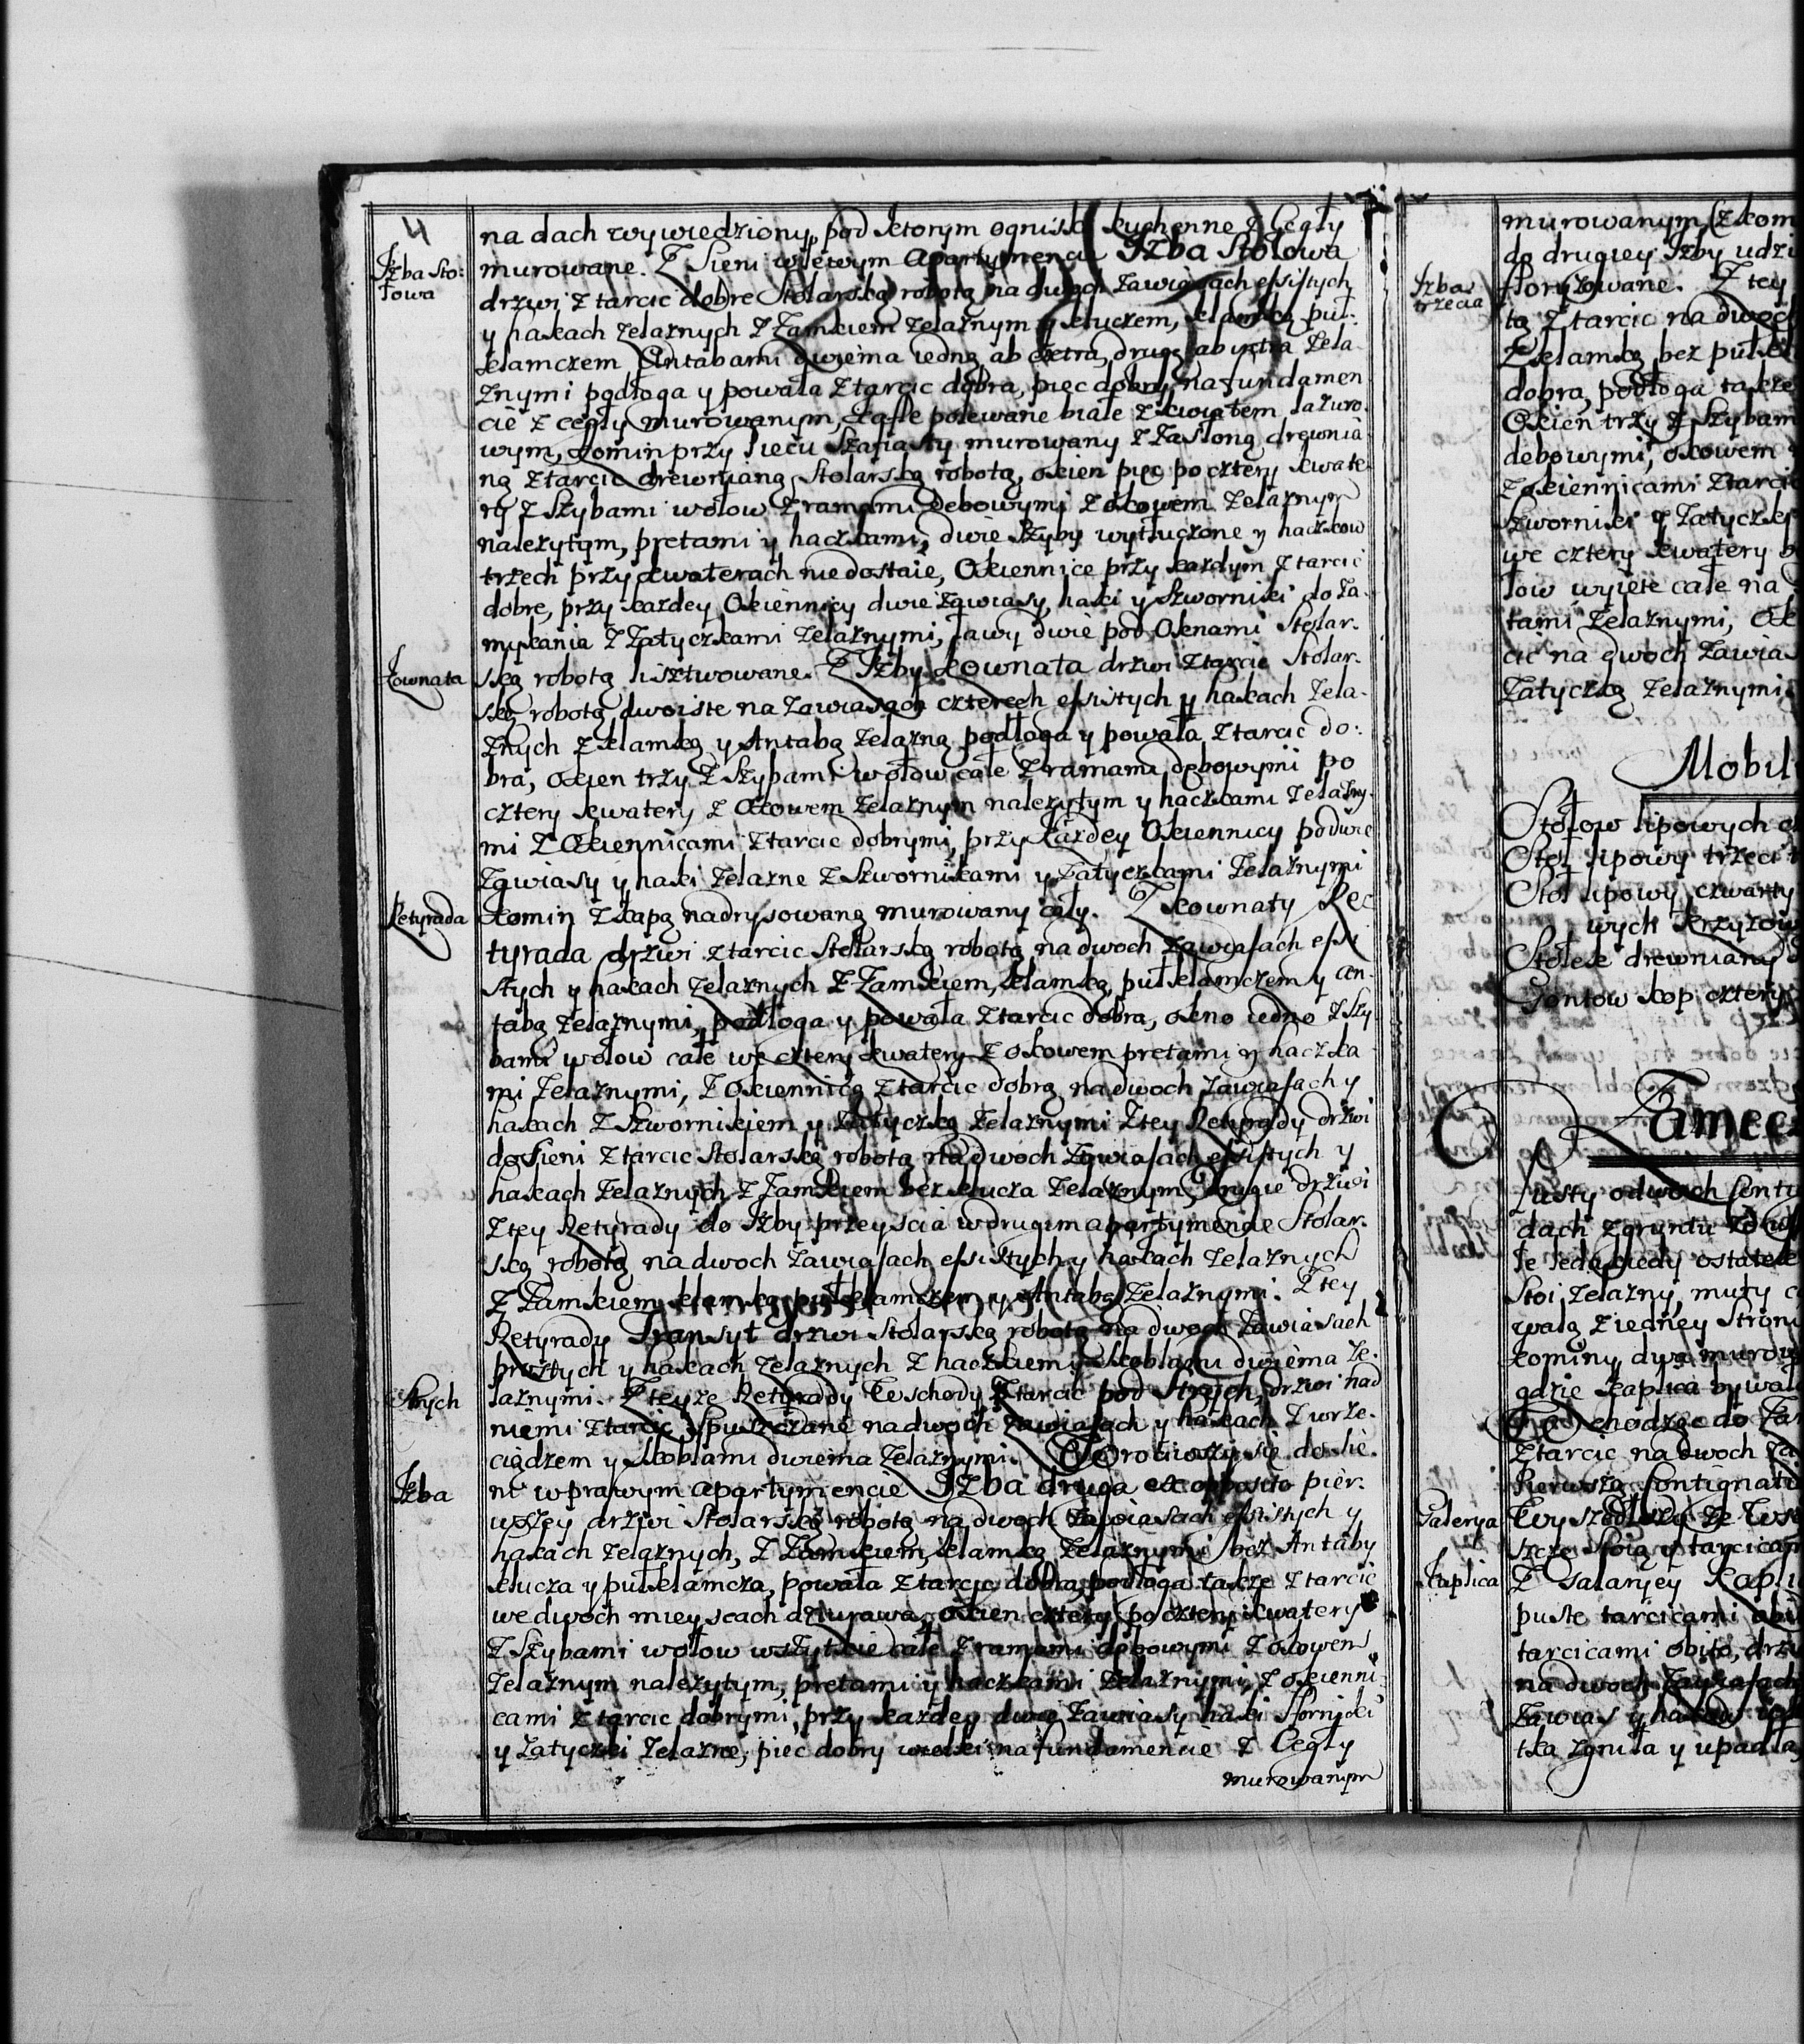 4
na dach wywiedziony, pod ktorym ognisko kuchenne z Cegły
Izba Sto:
łowa
murowane. Z Sieni w lewym Apartymencie Izba Stołowa
drzwi z tarcic dobre Stolarską robotą na dwoch zawiasach essistych
y hakach żelaznych z Zamkiem żelaznym y kluczem, klamką puł:
klamczem Antabami dwiema iedną ab extra, drugą ab intra żela
znymi podłoga y powała z tarcic dobra, piec dobry na fundamen
cie z cegły murowanym, kafle polewane białe z kwiatem lazuro
wym, komin przy piecu szafiasty murowany z Zasłoną drewnia
ną z tarcic drewnianą Stolarską robotą, okien pięć po cztery kwate
ry z Szybami wołow z ramami Debowymi z okowem żelaznym
należytym, prętami y haczkami, dwie Szyby wytłuczone y haczkow
trzech przy kwaterach nie dostaie, Okiennice przy kazdym z tarcic
dobre, przy kazdey Okiennicy dwie zawiasy, haki y Szworniki do Za-
mykania z Zatyczkami żelaznymi, ławy dwie pod Oknami Stolar.
Kownata
ską robotą lisztwowane. Z Izby Kownata drzwi z tarcic Stolar.
ską robotą dwoiste na zawiasach czterech essistych y hakach żela-
znych z klamką y Antabą żelazną podłoga y powała z tarcic do:
bra, okien trzy z Szybami wołow całe z ramami dębowymi po
cztery kwatery z Okowem żelaznym należytym y haczkami żelazny.
mi z Okiennicami z tarcic dobrymi, przy kazdey Okiennicy po dwie
zawiasy y haki żelazne z Szwornikami y Zatyczkami żelaznymi
Retyrada
Komin z kapą nadrysowaną murowany cały. Z kownaty Re
tyrada drzwi z tarcic Stolarską robotą na dwoch zawiasach essi
stych y hakach żelaznych z Zamkiem, klamką, pułklamczem y an-
tabą żelaznymi, podłoga y powała z tarcic dobra, okno iedno z Szy
bami wołow całe we cztery kwatery z okowem prętami y haczka
mi żelaznymi, z Okiennicą z tarcic dobrą na dwoch zawiasach y
hakach z Szwornikiem y Zatyczką żelaznymi z tey Retyrady drzwi
do Sieni z tarcic Stolarską robotą na dwoch zawiasach essistych y
hakach żelaznych z Zamkiem bez klucza żelaznym, drugie drzwi
z tey Retyrady do Izby przeyscia w drugim apartymencie Stolar.
ską robotą na dwoch zawiasach essistych y hakach żelaznych
z Zamkiem klamką pułklamczem y Antabą żelaznymi. Z tey
Retyrady Transyt drzwi Stolarską robotą na dwoch zawiasach
prostych y hakach żelaznych z haczkiem y skoblami dwiema że-
Strych
laznymi. Z teyże Retyrady Te schody z tarcic pod Strych, drzwi nad
niemi z tarcic spuszczane na dwoch zawiasach y hakach z wrze-
ciądzem y skoblami dwiema żelaznymi. Powrociwszy się do Sie-
Izba
ni w prawym apartymencie Izba druga ex opposito pier.
wszey drzwi Stolarską robotą na dwoch zawiasach essistych y
hakach żelaznych, z Zamkiem klamką żelaznymi bez Antaby
klucza y pułklamcza, powała z tarcic dobra, podłoga także z tarcic
we dwoch mieyscach dziurawa, okien cztery po cztery kwatery
z Szybami wołow wszytkie całe z ramami dębowymi z okowem
żelaznym należytym, prętami y haczkami żelaznymi, z okienni
cami z tarcic dobrymi, przy kazdey dwie zawiasy haki Swornicki
y Zatyczki żelazne, piec dobry wielki na fundamencie z Cegły
murowanym
murowanym, z kom
do drugiey Izby udzi
Izba
trzecia
storyzowane. Z tey
tą z tarcic na dwoch
z klamką bez puł
dobra, podłoga także
Okien trzy z Szybam
debowymi, okowem
z okiennicami z tarcic
Szworniki y Zatyczki
we cztery kwatery
łow wyięte całe na
tami żelaznymi, Ok
cic na dwoch zawias
Zatyczką żelaznymi
Mobil
Stołow lipowych
Stoł lipowy trzeci
Stoł lipowy czwarty
wych krzyżow
Stołek drewniany
Gontow kop cztery
Zamecz
pusty o dwoch Conty
dach z gruntu
stoi żelazny, mury
wałą z iedney Stron
kominy dwa murow
gdzie kaplica bywał
chodząc do
z tarcic na dwoch za
Pierwsza Contignati
Galerya
szcze stoią y tarcicam
Kaplica
z Galaryey Kapli
puste tarcicami obi
tarcicami obito, drzw
na dwoch zawiasach
zawias y hakow
tka zgniła y upadła